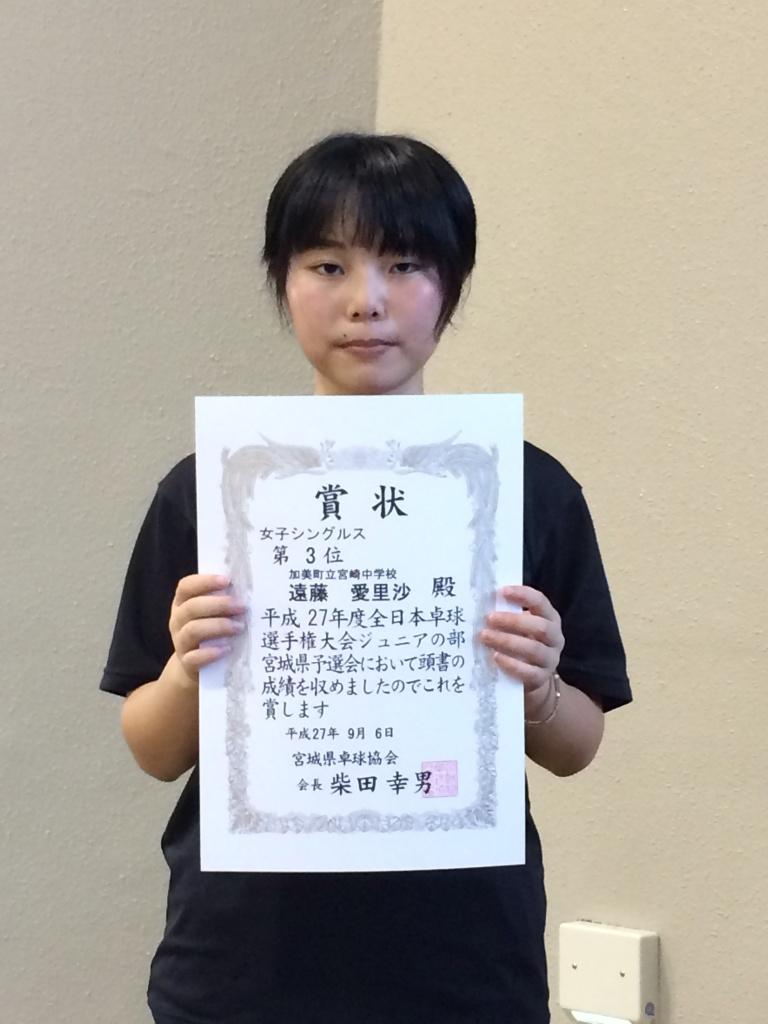 賞状
女子シングルス
第 3 位
加美町立宮崎中学校
遠藤 愛里沙 殿
平成 27年度全日本卓球
選手権大会ジュニアの部
宮城県予選会において頭書の
成績を収めましたのでこれを
賞します
平成27年 9月 6日
宮城県卓球協会
会長 柴田 幸男